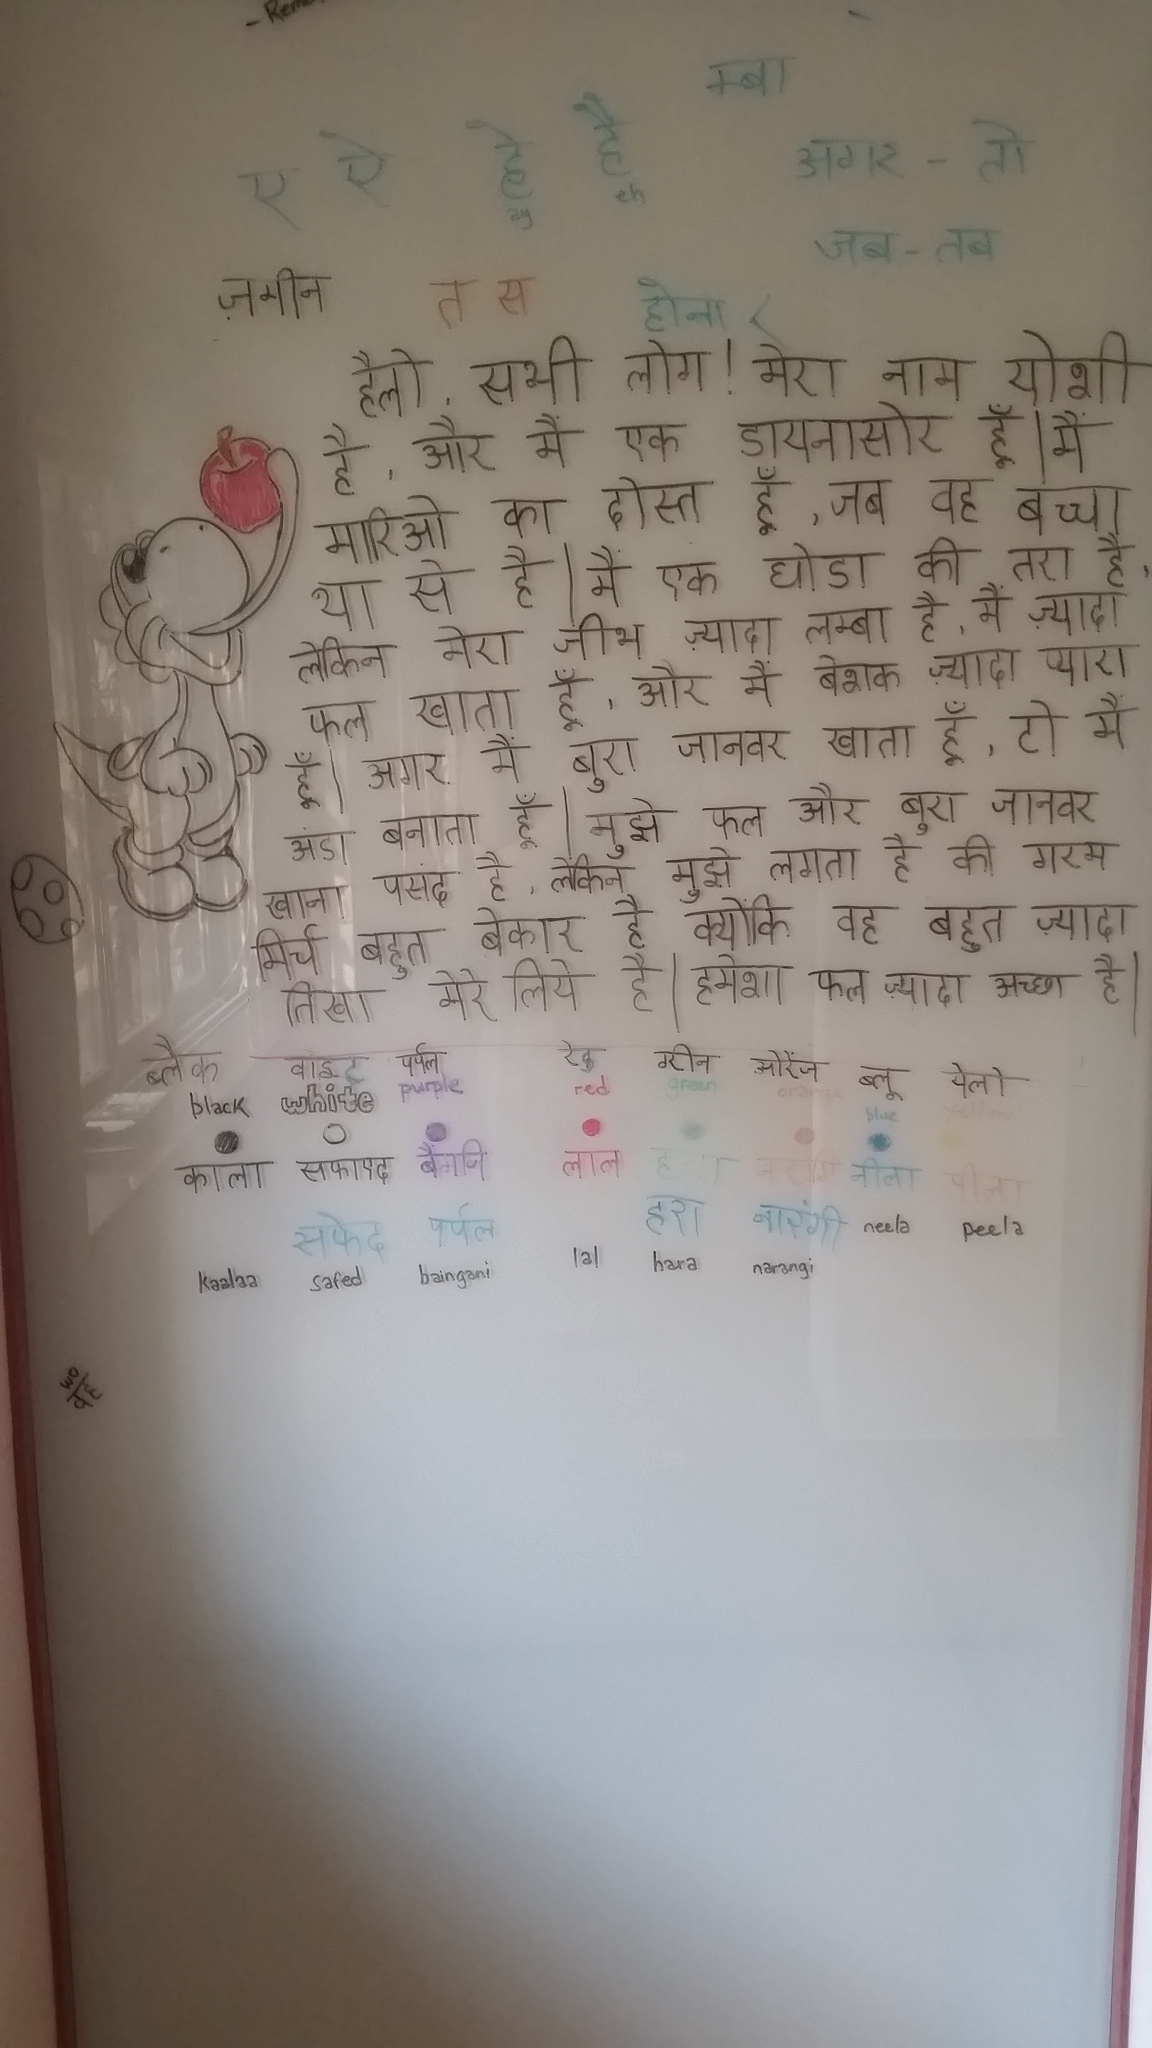 म्बा
ए ऐ हे है
ay eh
अगर - तो
जब - तब
ज़मीन त स होना र
हैलो, सभी लोग! मेरा नाम योशी
है, और मैं एक डायनासोर हूँ | मैं
मारिओ का दोस्त हूँ, जब वह बच्चा
था से है | मैं एक घोडा की तरा है,
लेकिन मेरा जीभ ज़्यादा लम्बा है, मैं ज़्यादा
फल खाता हूँ, और मैं बेशक ज़्यादा प्यारा
हूँ | अगर मैं बुरा जानवर खाता हूँ, टो मैं
अंडा बनाता हूँ | मुझे फल और बुरा जानवर
खाना पसंद है, लेकिन मुझे लगता है की गरम
मिर्च बहुत बेकार है क्योकि वह बहुत ज़्यादा
तिखा मेरे लिये है | हमेशा फल ज़्यादा अच्छा है |
ब्लैक वाइट पर्पल रेड ग्रीन ओरेंज ब्लू येलो
black white purple red green orange blue yellow
काला सफाएद बैंगनि लाल नीला पीला
सफेद पर्पल हरा नारंगी neela peela
kaalaa safed baingani lal hara narangi
wo
वह